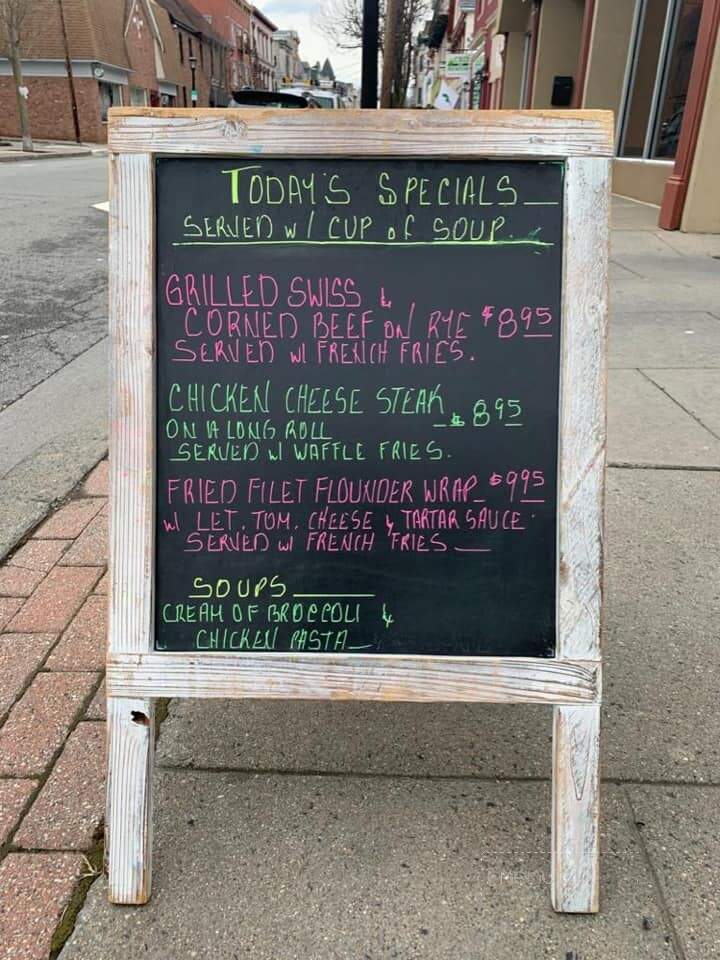 TODAY'S SPECIALS
SERVED W/ CUP OF SOUP
GRILLED SWISS &
CORNED BEEF ON RYE $8.95
SERVED W/ FRENCH FRIES.
CHICKEN CHEESE STEAK $8.95
ON A LONG ROLL
SERVED W/ WAFFLE FRIES.
FRIED FILET FLOUNDER WRAP $9.95
W/ LET. TOM. CHEESE & TARTAR SAUCE
SERVED W/ FRENCH FRIES
SOUPS
CREAM OF BROCCOLI &
CHICKEN PASTA